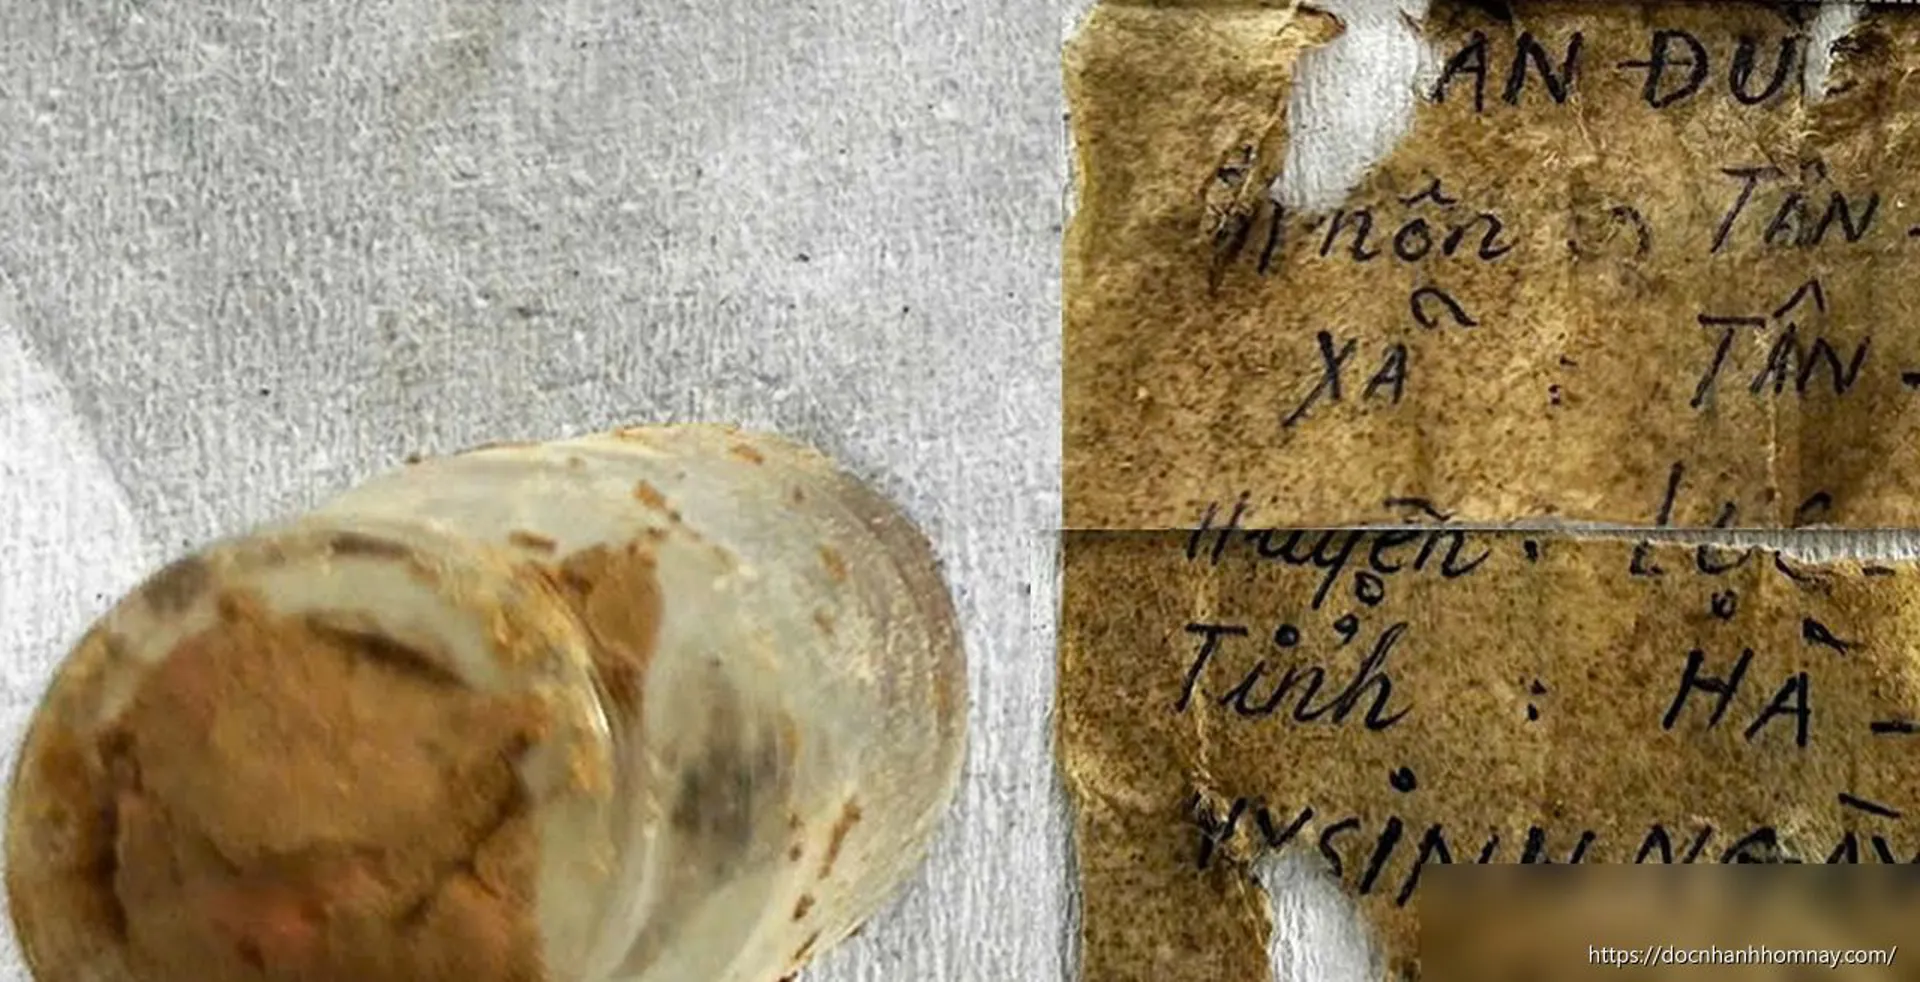 ĐỨC
Thôn : TÂN -
XÃ : TÂN -
Huyện : LỤC -
Tỉnh : HÀ -
HY SINH NGÀY
https://docnhanhhomnay.com/